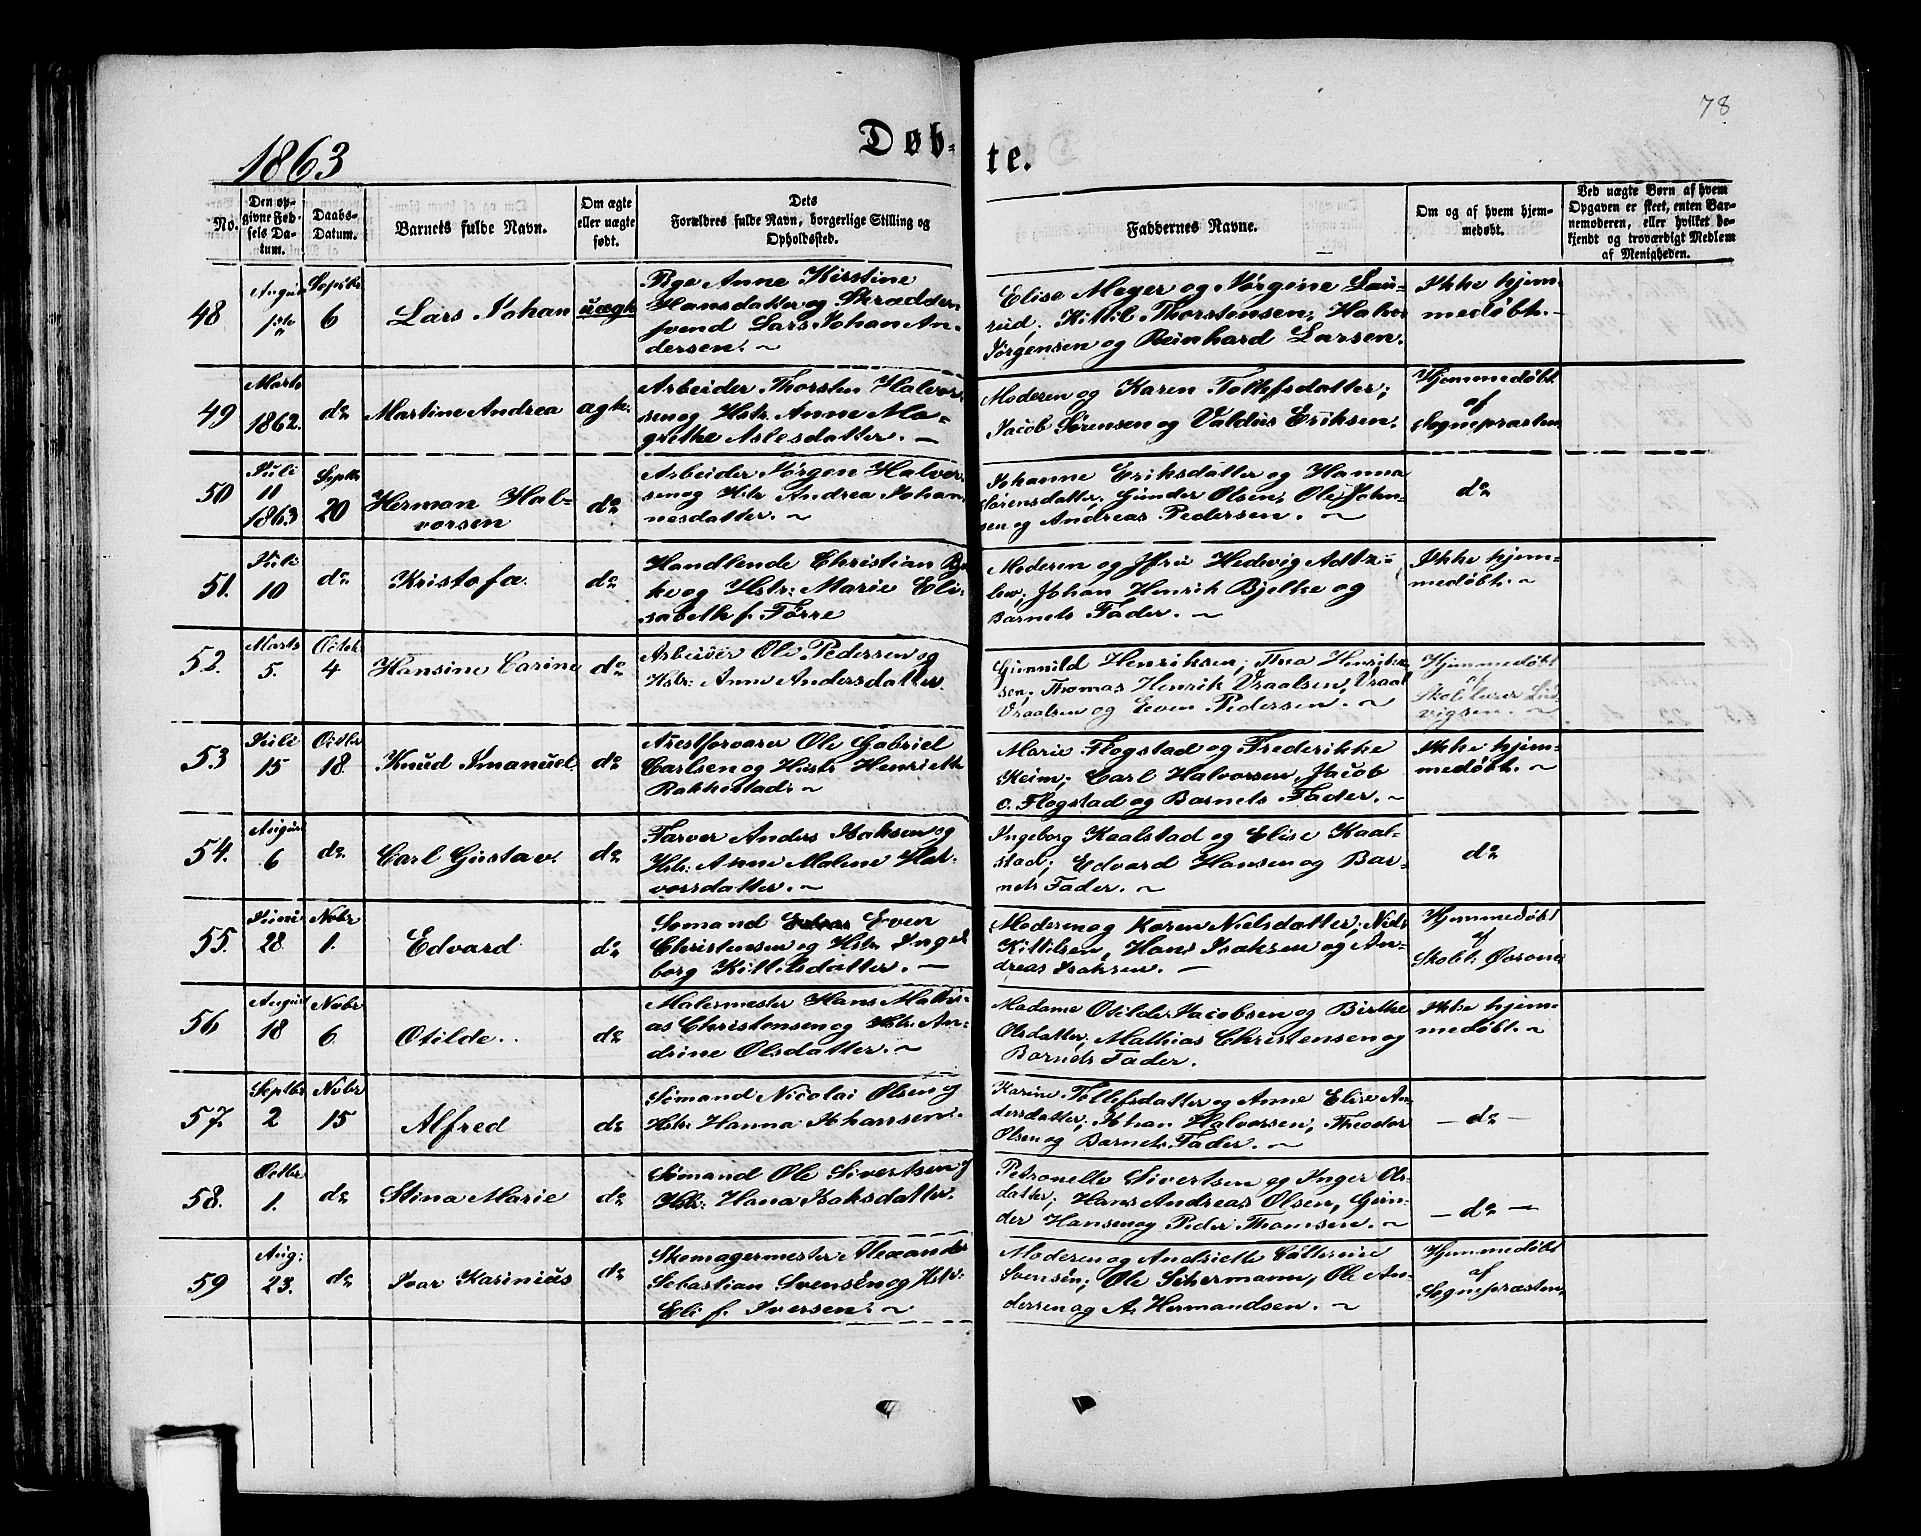 78
1863
Døb-
te.
No.
Den op-
givne Fød-
sels Da-
tum.
Daabs-
Datum.
Barnets fulde Navn.
Om ægte
eller uægte
født.
Dets
Forældres fulde Navn, borgerlige Stilling og
Opholdssted.
Faddernes Navne.
Om og af hvem hjem-
medøbt.
Ved uægte Børn af hvem
Opgaven er skeet, enten Bar-
nemoderen, eller hvilket be-
kjendt og troværdigt Medlem
af Menigheden.
48
August
1ste
Septbr
6
Lars Johan
uægte
Pige Anne Kirstine
Hansdatter og Skrædder
svend Lars Johan An-
dersen. ~
Elise Meyer og Jørgine Lau-
rud, Kittil Thorstensen, Halvor
Jørgensen og Reinhard Larsen.
Ikke hjem-
medøbt. -
49
Marts
1862.
do
Martine Andrea
ægte:
Arbeider Thorsten Halvor-
sen og Hstr. Anne Ma-
grethe Aslesdatter. —
Moderen og Karen Tolfsdatter;
Jacob Sørensen og Valdus Eriksen.
Hjemmedøbt
af
Sognepræsten
50
Juli
11
1863
Septbr
20
Herman Hal-
vorsen
do
Arbeider Jørgen Halvor-
sen og Hstr Andrea Johan-
nesdatter. ~
Johanne Eriksdatter og Hanna
Sørensdatter, Gunder Olsen, Ole John-
sen og Andreas Pedersen. ~
do
51.
Juli
10
do
Kristofa.
do
Handlende Christian Bjel-
ke og Hstr: Marie Eli-
sabeth f. Førre
Moderen og Jfru Hedvig
Johan Henrik Bjelke og
Barnets Fader. ~
Ikke hjem-
medøbt. ~
52.
Marts
5.
Octob.
4
Hansine Carine
do
Arbeider Ole Pedersen og
Hstr: Anne Andersdatter.
Gunnild Henriksen, Tina Henrik-
sen, Thomas Henrik Vraalsen, Vraal
Vraalsen og Even Pedersen. ~
Hjemmedøbt
af
Skolelærer Lud-
vigsen. ~
53
Juli
15
Octbr
18
Knud Imanuel.
do
Arestforvarer Ole Gabriel
Carlsen og Hustr Henriette
Rakkestad. ~
Marie Flogstad og Frederikke
Keim, Carl Halvorsen, Jacob
o. Flogstad og Barnets Fader. ~
Ikke hjem-
medøbt. ~
54.
August
6
do.
Carl Gustav.
do
Farver Anders Isaksen og
Hstr: Anne Malene Hal-
vorsdatter. ~
Ingeborg Kaalstad og Elise Kaal-
stad; Edvard Hansen og Bar-
nets Fader. ~
do
55.
Juni
28
Nobr
1.
Edvard
do
Sømand Even
Christensen og Hstr Inge-
borg Kittilsdatter. —
Moderen og Karen Nielsdatter, Niels
Kittilsen, Hans Isaksen og An-
dreas Isaksen. —
Hjemmedøbt
af
56
August
18
Nobr
6
Otilde.
do
Malermester Hans Mathi-
as Christensen og Hstr. An-
drine Olsdatter. ~
Madame Otilde Jacobsen og Birthe
Olsdatter, Mathias Christensen og
Barnets Fader.
Ikke hjem-
medøbt. ~
57.
Septbr
2
Nobr
15
Alfred
do
Sømand Nicolai Olsen og
Hstr: Hanna Johansen.
Karine Tollefsdatter og Anne Elise An-
dersdatter; Johan Halvorsen, Theodor
Olsen og Barnets Fader. ~
— do —
58.
Octbr
1.
do
Stina Marie
do
Sømand Ole Sivertsen og
Hstr: Hana Isaksdatter.
Petronelle Sivertsen og Inger Ols-
datter, Hans Andreas Olsen, Gun-
der Hansen og Peder Thomsen. ~
— do —
59
Aug:
23.
do
Ivar Karinius
do
Skomagermester Alexander
Sebastian Svensén og Hstr:
Eli f. Iversen. ~
Moderen og Andriette Cathrine
Svensén; Ole Schermann, Ole An-
dersen og A. Hermandsen. ~
Hjemmedøbt
af
Sognepræsten.